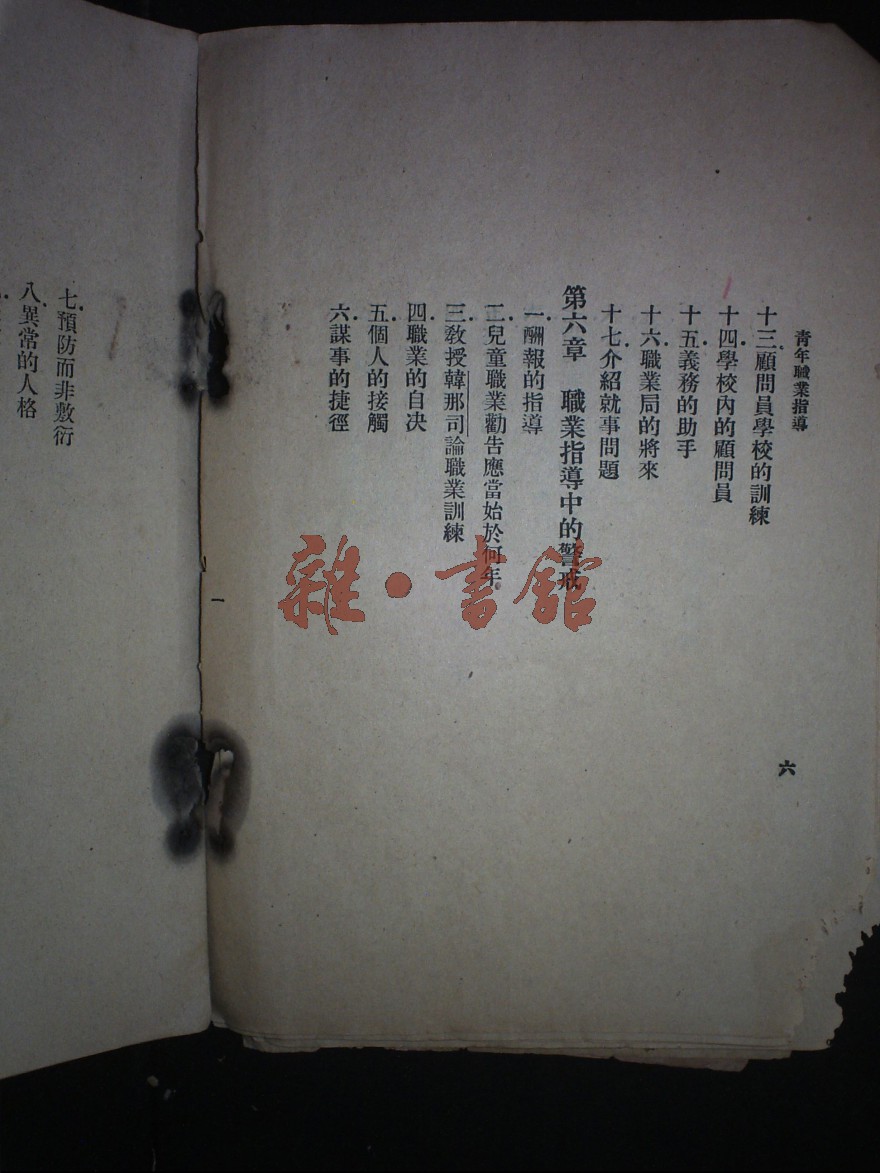 青年職業指導
十三.顧問員學校的訓練
十四.學校內的顧問員
十五.義務的助手
十六.職業局的將來
十七.介紹就事問題
第六章 職業指導中的警戒
一.酬報的指導
二.兒童職業勸告應當始於何年。
三.教授韓那司論職業訓練
四.職業的自決
五.個人的接觸
六.謀事的捷徑
六
一
七.預防而非敷衍
八.異常的人格
雜·書館